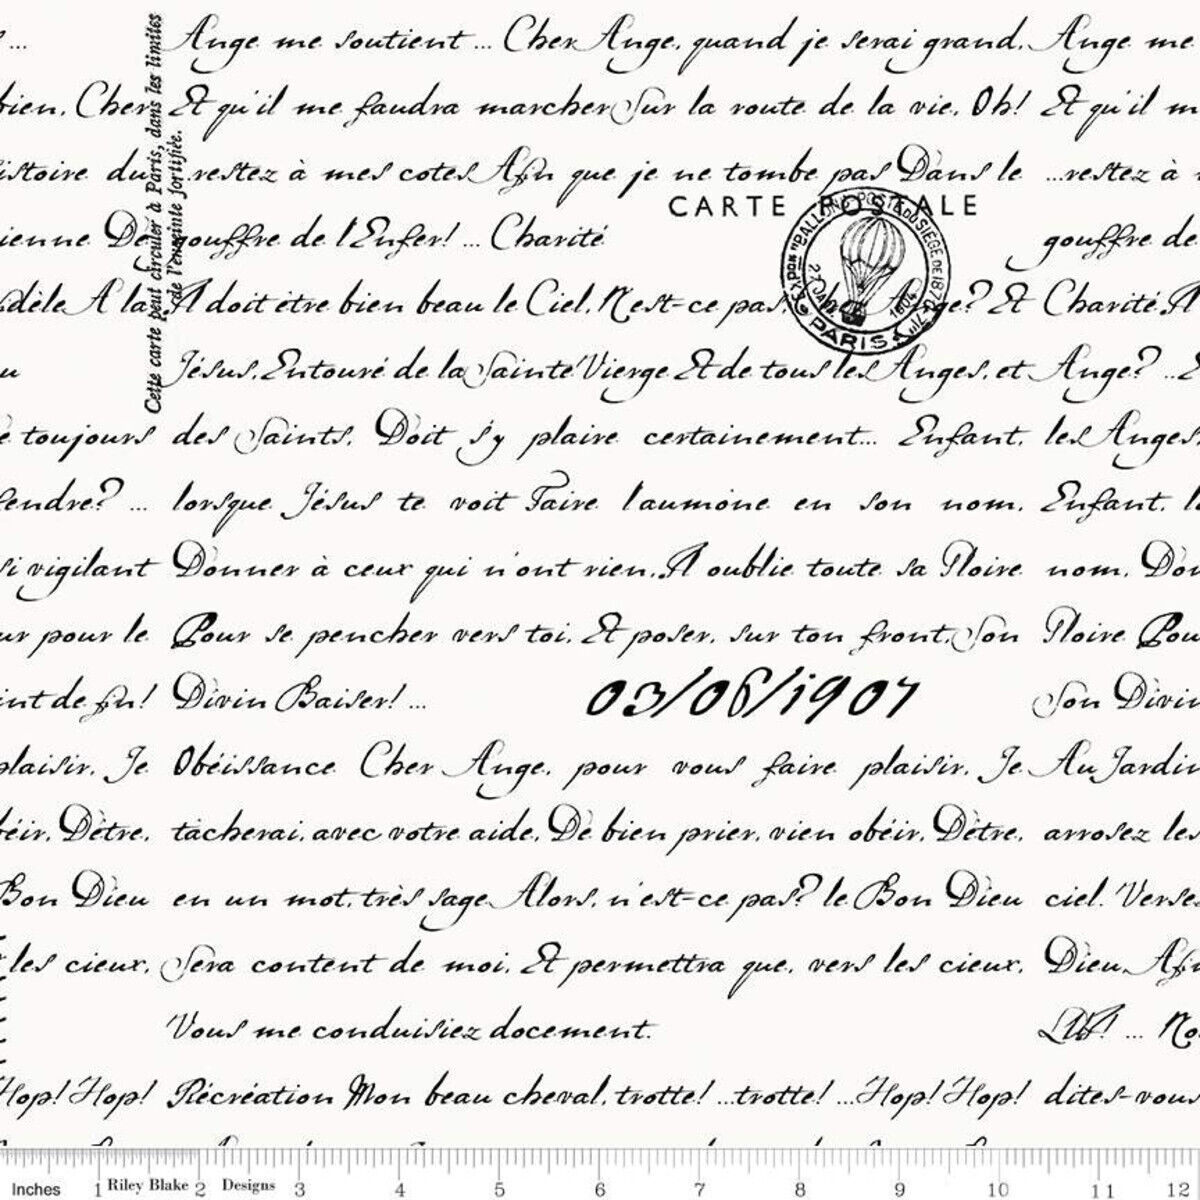 ... Ange me soutient ... Cher Ange, quand je serai grand, Ange me
bien, Cher Et qu'il me faudra marcher Sur la route de la vie, Oh! Et qu'il m
istoire du ...restez à mes cotes Afin que je ne tombe pas Dans le ...restez à
CARTE POSTALE
ienne De gouffre de l'Enfer! ... Charité gouffre de
idèle A la Il doit être bien beau le Ciel, N'est-ce pas, cher Ange? Et Charité Il
Jésus, Entouré de la Sainte Vierge Et de tous les Anges, et Ange? ...
e toujours des Saints, Doit s'y plaire certainement... Enfant, les Anges,
fendre? ... lorsque Jésus te voit Faire l'aumône en son nom, Enfant, l
si vigilant Donner à ceux qui n'ont rien, Il oublie toute sa Gloire nom, Don
ur pour le Pour se pencher vers toi, Et poser, sur ton front, Son Gloire Pou
int de fin! Divin Baiser! ... 03/06/1907 Son Divin
plaisir, Je Obéissance Cher Ange, pour vous faire plaisir, Je Au Jardin
béir, D'être, tâcherai, avec votre aide, De bien prier, vien obéir, D'être, arrosez les
Bon Dieu en un mot, très sage Alors, n'est-ce pas? le Bon Dieu ciel! Verse
les cieux, Sera content de moi, Et permettra que, vers les cieux, Dieu, Afin
Vous me conduisiez docement. ... No
Hop! Hop! Récréation Mon beau cheval, trotte! ...trotte! ...Hop! Hop! dites-vous
Cette carte peut circuler à Paris, dans les limites
de l'enceinte fortifiée.
PARIS
Inches 1 Riley Blake 2 Designs 3 4 5 6 7 8 9 10 11 12